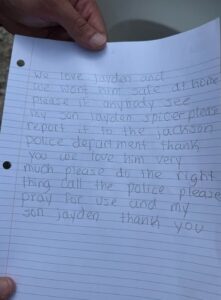 we love jayden and
we want him safe at home
please if anybody see
my son jayden spicer please
report it to the jackson
police department thank
you we love him very
much please do the right
thing call the police please
pray for use and my
son jayden thank you